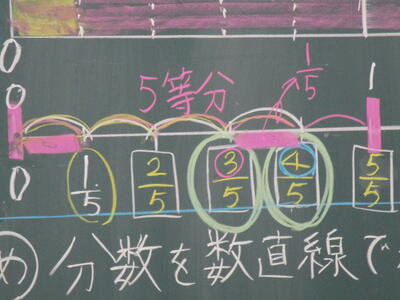 0
0 5等分 1/5 1
0 1/5 2/5 3/5 4/5 5/5
め 分数を数直線で